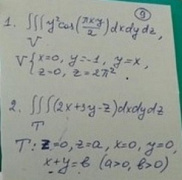 9
1. ∭ y² cos(πxy/2) dxdydz,
V
V { x=0, y=-1, y=x,
z=0, z=2π²
2. ∭ (2x+3y-z) dxdydz
T
T: z=0, z=a, x=0, y=0,
x+y=b (a>0, b>0)